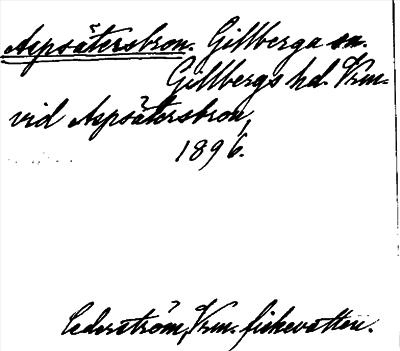 Aspsätersbron. Gillberga sn.
Gillbergs hd. Vrm.
vid Aspsätersbron,
1896.
Cederström, Vrm. fiskevatten.